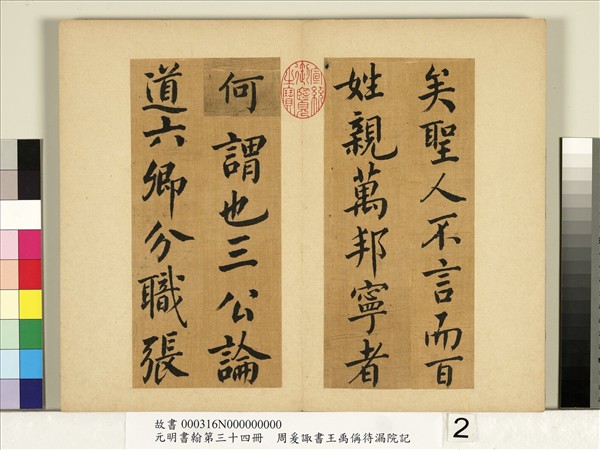 矣聖人不言而百
姓親萬邦寧者
何謂也三公論
道六卿分職張
宣統御覽之寶
故書 000316N000000000
元明書翰第三十四冊　周爰諏書王禹偁待漏院記
2